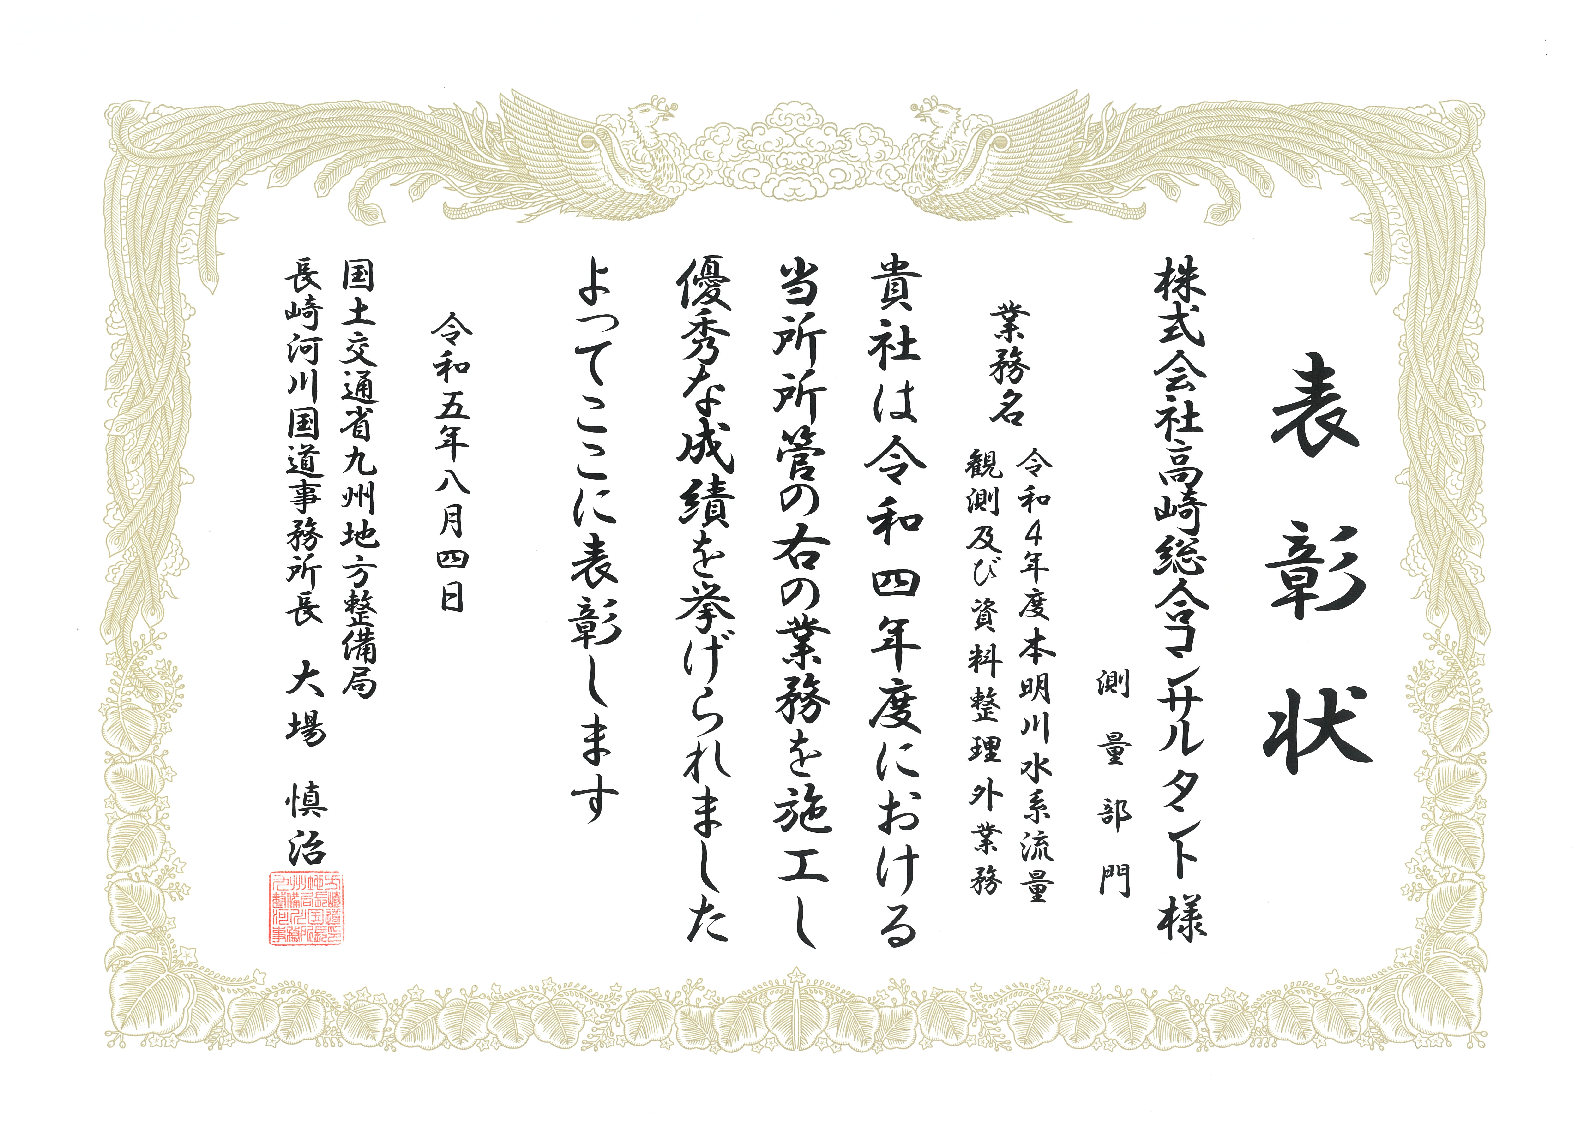 表彰状
株式会社高崎総合コンサルタント様
測量部門
業務名
令和4年度本明川水系流量
観測及び資料整理外業務
貴社は令和四年度における
当所所管の右の業務を施工し
優秀な成績を挙げられました
よってここに表彰します
令和五年八月四日
国土交通省九州地方整備局
長崎河川国道事務所長 大場 慎治